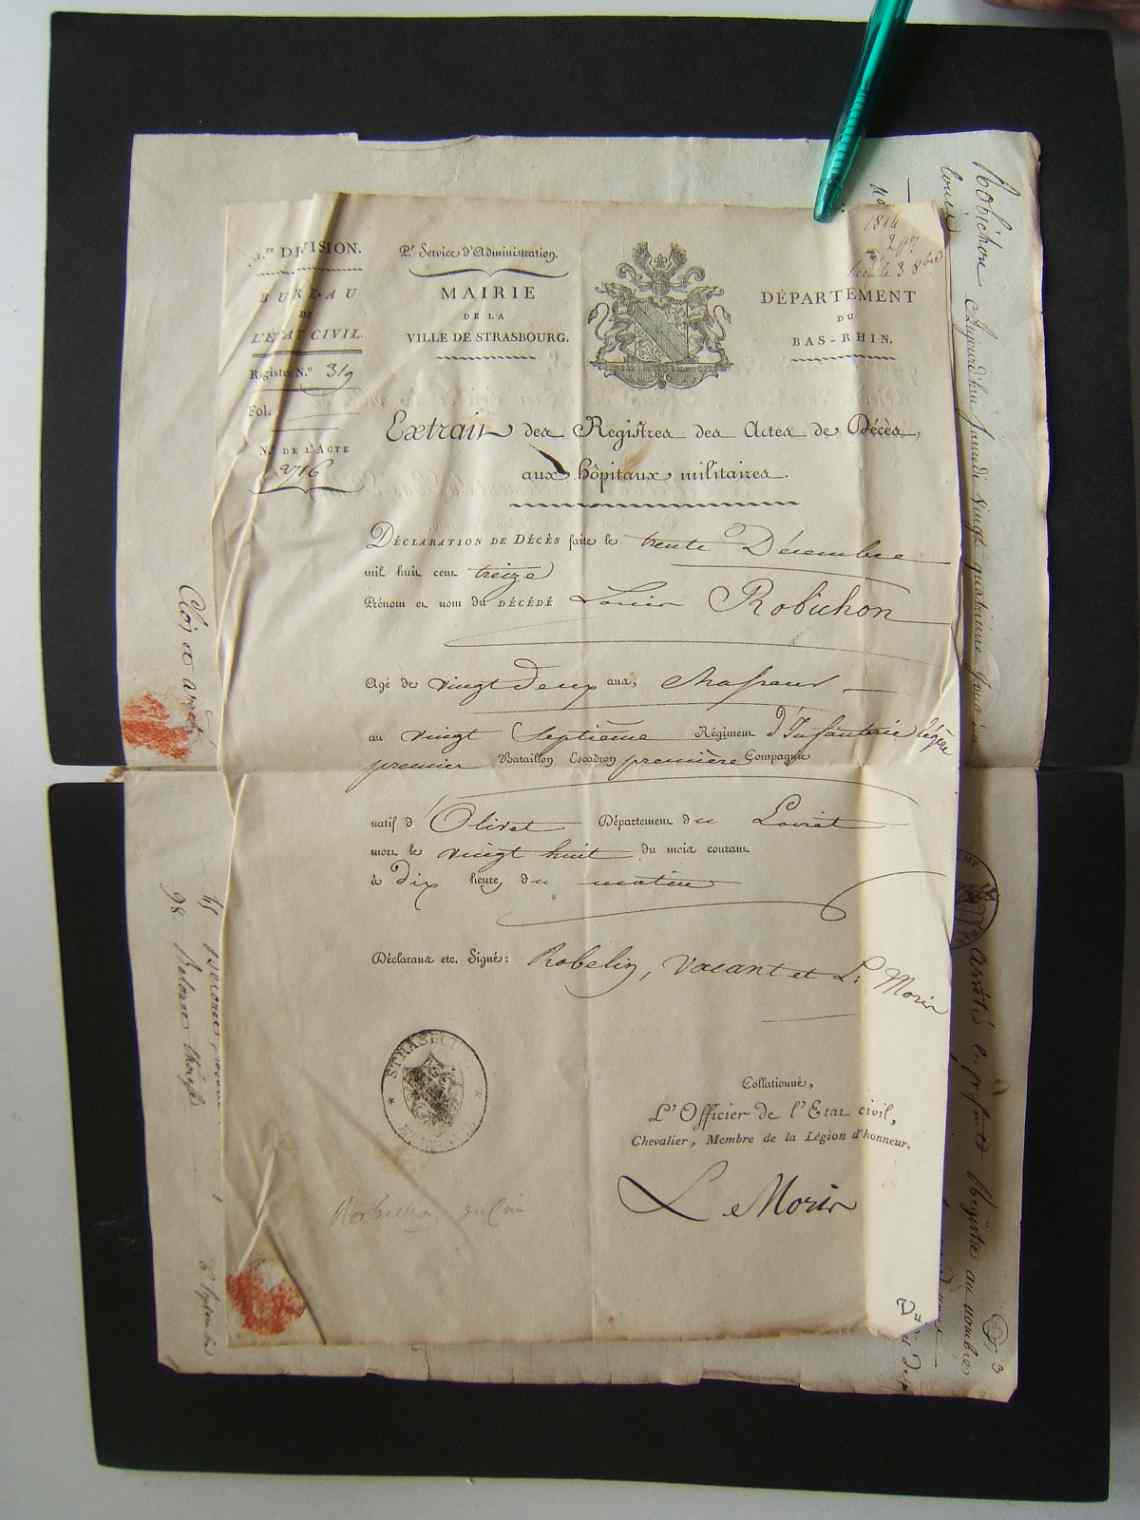 DIVISION.
BUREAU
DE
L'ÉTAT CIVIL.
Registre N.º 319
Fol.
N.º DE L'ACTE
2716
P.r Service d'Administration.
MAIRIE
DE LA
VILLE DE STRASBOURG.
DÉPARTEMENT
DU
BAS-RHIN.
1814
Extrait des Registres des Actes de Décès,
aux hôpitaux militaires.
DÉCLARATION DE DÉCÈS faite le trente Décembre
mil huit cent treize
Prénom et nom du DÉCÉDÉ Louis Robichon
Agé de vingt deux ans, Chasseur
au vingt Septième Régiment d'Infanterie légère
premier Bataillon Escadron première Compagnie
natif d'Olivet Département du Loiret
mort le vingt huit du mois courant
à dix heures du matin
Déclarans etc. Signés: Robelin, Vacant et Le Morin
STRASBOURG
Collationné,
L'Officier de l'Etat civil,
Chevalier, Membre de la Légion d'honneur.
Le Morin
Vu
Robichon
Louis
Aujourd'hui Samedi vingt quatrième jour
arrêté le présent Registre au nombre
Clos et arrêté
98